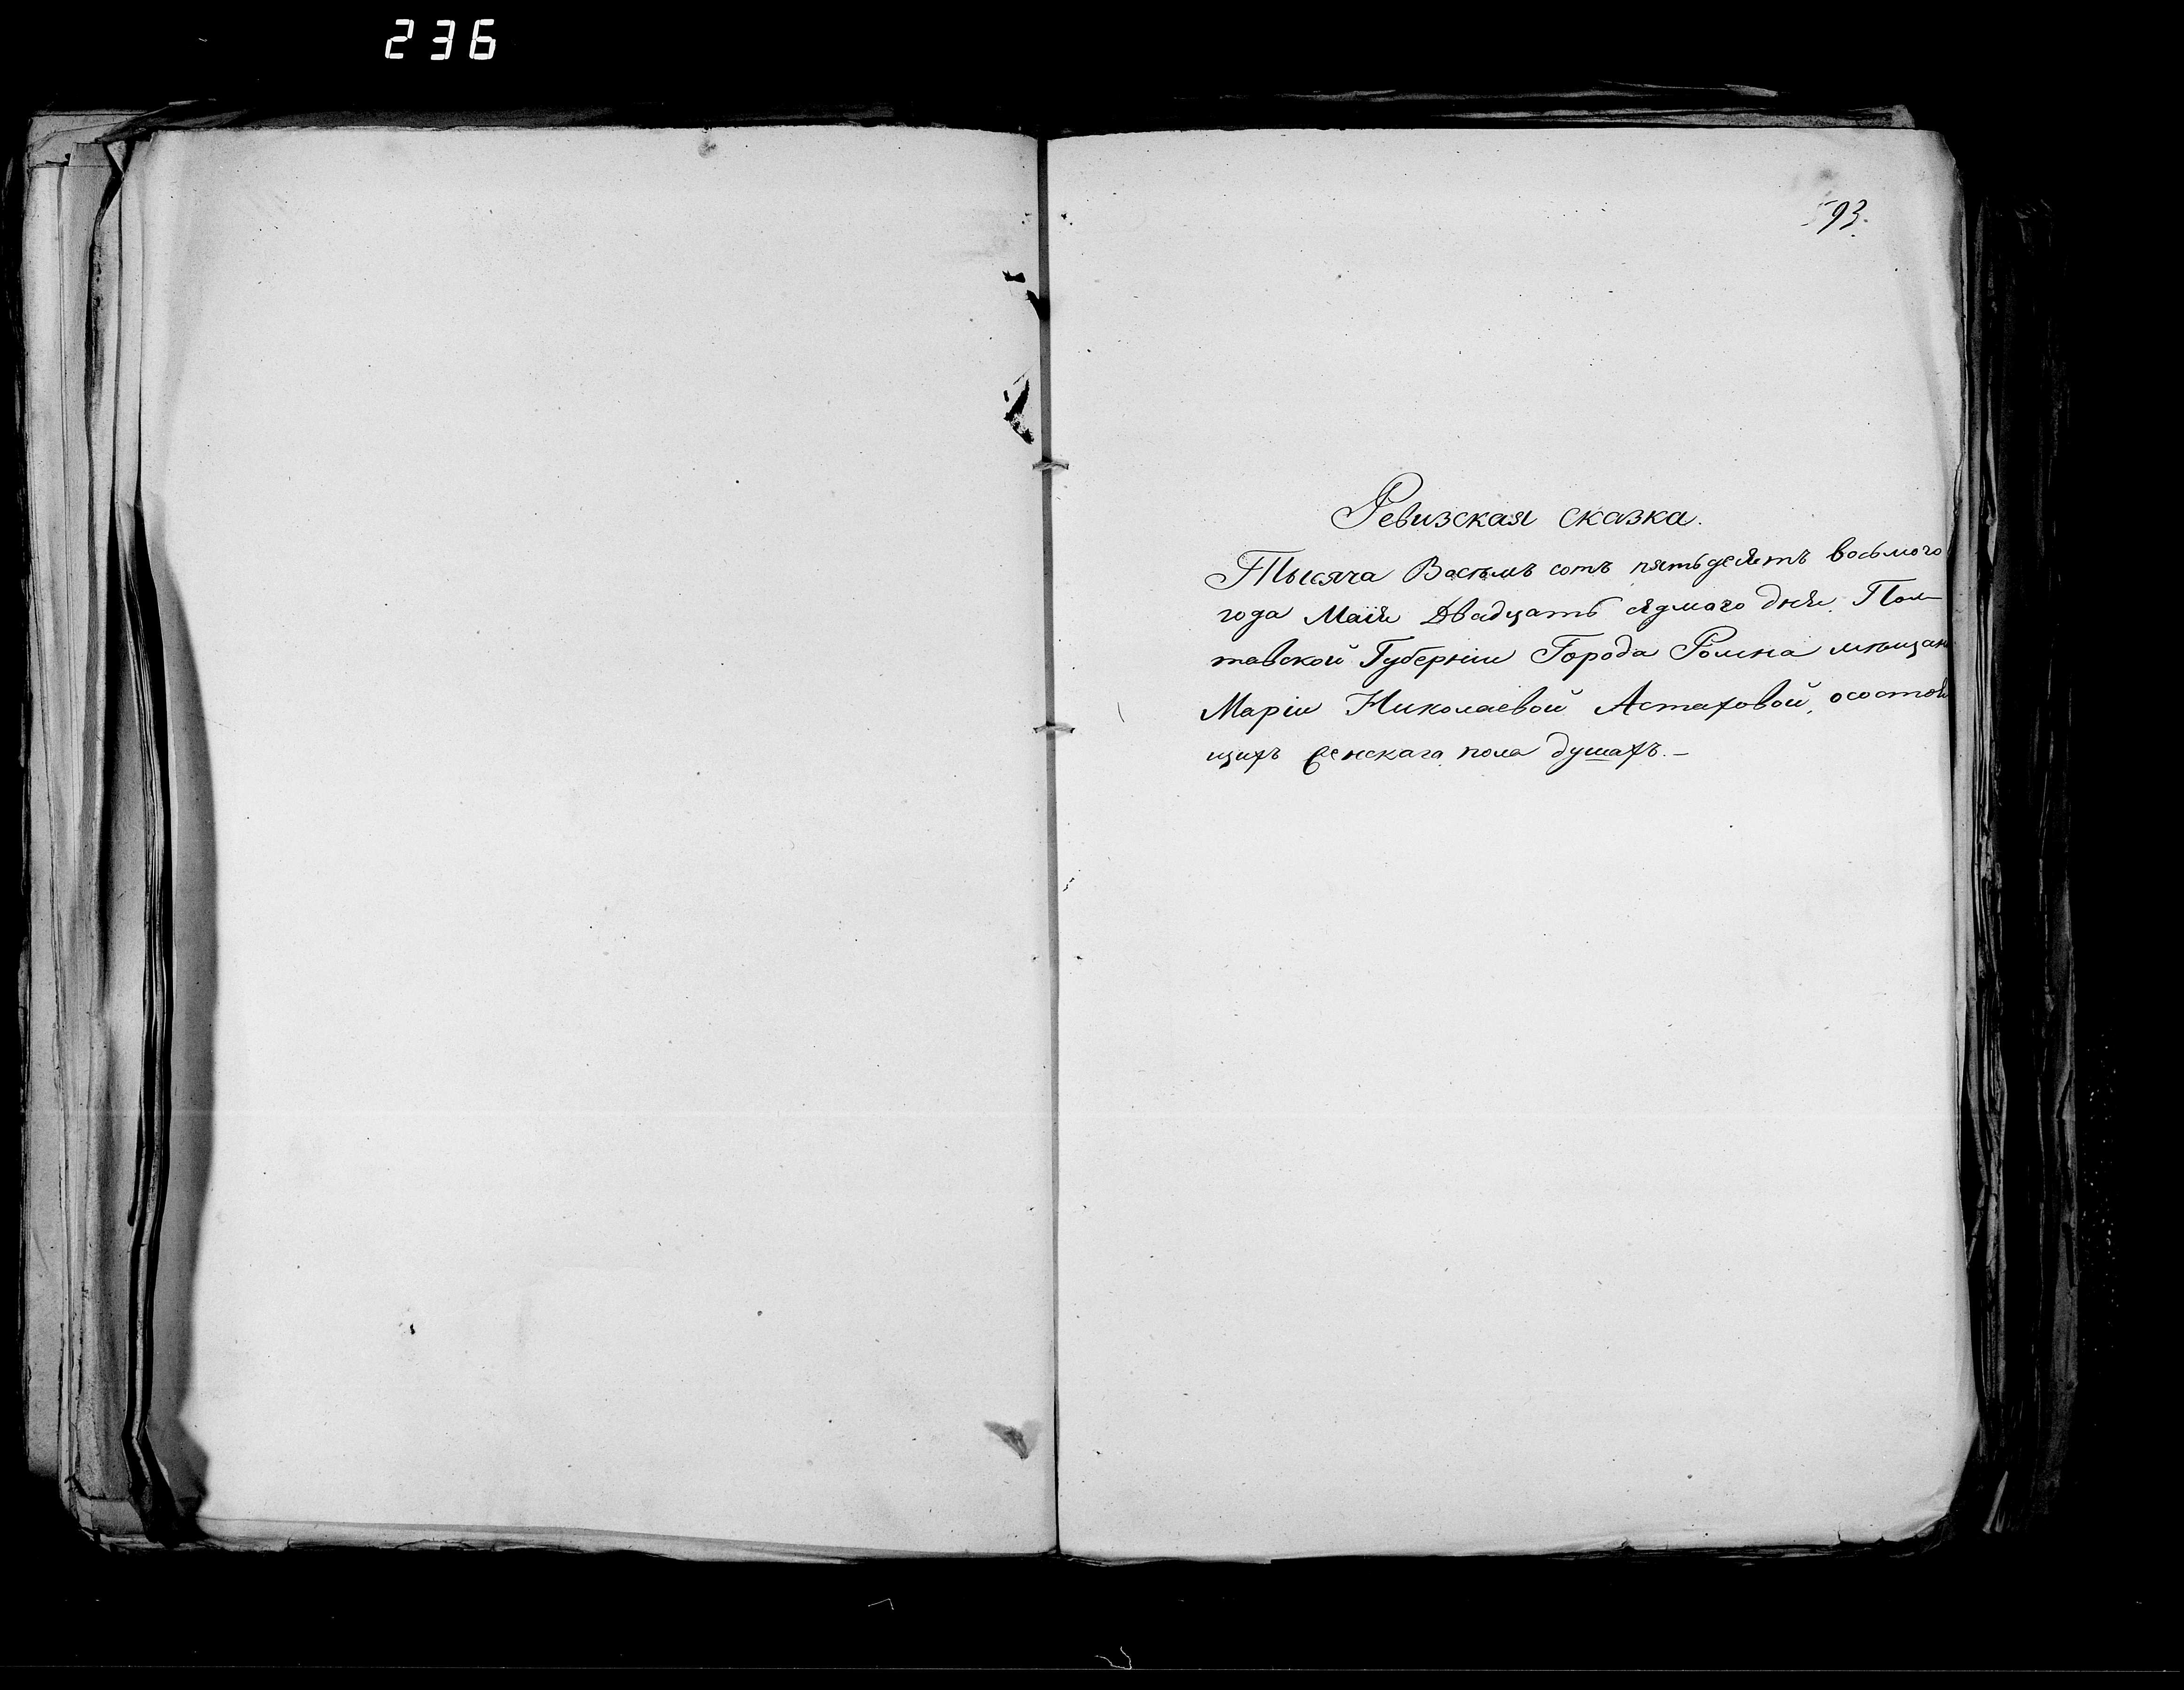 236
593.
Ревизская сказка.
Тысяча Восемь сотъ пятьдесятъ восьмого
года Маія Двадцать седмого дня. Пол-
тавской Губерніи Города Ромна мещан
Маріи Николаевой Астаховой, осостоя
щихъ женскаго пола душахъ.-